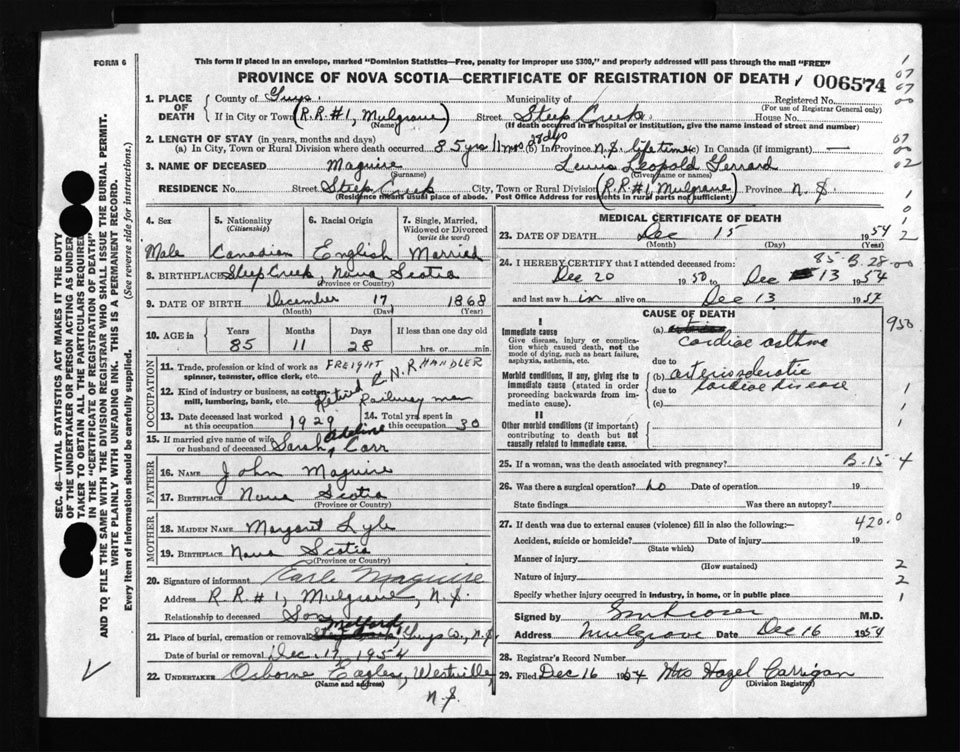 FORM 6
This form if placed in an envelope, marked "Dominion Statistics—Free, penalty for improper use $300," and properly addressed will pass through the mail "FREE"
PROVINCE OF NOVA SCOTIA—CERTIFICATE OF REGISTRATION OF DEATH
006574
1. PLACE OF DEATH
County of Guys. Municipality of Registered No.
(For use of Registrar General only)
If in City or Town (R.R. #1, Mulgrave) Street Steep Creek House No.
(Name) (If death occurred in a hospital or institution, give the name instead of street and number)
2. LENGTH OF STAY (in years, months and days)
(a) In City, Town or Rural Division where death occurred 85 yrs 11 mos 28 days (b) In Province N.S. life time (c) In Canada (if immigrant) —
3. NAME OF DECEASED Maguire Lewis Leopold Gerrard
(Surname) (Given name or names)
RESIDENCE No. Street Steep Creek City, Town or Rural Division (R.R. #1, Mulgrave) Province N.S.
(Residence means usual place of abode. Post Office Address for residents in rural parts not sufficient)
4. Sex
Male
5. Nationality (Citizenship)
Canadian
6. Racial Origin
English
7. Single, Married, Widowed or Divorced (write the word)
Married
8. BIRTHPLACE Steep Creek, Nova Scotia
(Province or Country)
9. DATE OF BIRTH December 17, 1868
(Month) (Day) (Year)
10. AGE in
Years Months Days If less than one day old
85 11 28 hrs. or min.
OCCUPATION
11. Trade, profession or kind of work as spinner, teamster, office clerk, etc. FREIGHT HANDLER
12. Kind of industry or business, as cotton mill, lumbering, bank, etc. Retired C.N.R. Railway man
13. Date deceased last worked at this occupation 1929
14. Total yrs. spent in this occupation 30
15. If married give name of wife or husband of deceased Sarah Adeline Carr
FATHER
16. NAME John Maguire
17. BIRTHPLACE Nova Scotia
(Province or Country)
MOTHER
18. MAIDEN NAME Margaret Lyle
19. BIRTHPLACE Nova Scotia
(Province or Country)
20. Signature of informant Earle Maguire
Address R.R. #1, Mulgrave, N.S.
Relationship to deceased Son
21. Place of burial, cremation or removal Melford, Guys Co., N.S.
Date of burial or removal Dec. 17, 1954
22. UNDERTAKER Osborne Eagles, Westville, N.S.
(Name and address)
MEDICAL CERTIFICATE OF DEATH
23. DATE OF DEATH Dec 15 1954
(Month) (Day) (Year)
85-B.28-00
24. I HEREBY CERTIFY that I attended deceased from:
Dec 20 1950, to Dec 13 1954
and last saw him alive on Dec 13 1954
CAUSE OF DEATH
I
Immediate cause
Give disease, injury or complication which caused death, not the mode of dying, such as heart failure, asphyxia, asthenia, etc.
(a) cardiac asthma
due to
Morbid conditions, if any, giving rise to immediate cause (stated in order proceeding backwards from immediate cause).
(b) arteriosclerotic
due to cardiac disease
(c)
II
Other morbid conditions (if important) contributing to death but not causally related to immediate cause.
950
25. If a woman, was the death associated with pregnancy?
B-15-4
26. Was there a surgical operation? no Date of operation 19
State findings Was there an autopsy?
27. If death was due to external causes (violence) fill in also the following:—
420.0
Accident, suicide or homicide? Date of injury 19
(State which)
Manner of injury
(How sustained)
Nature of injury
Specify whether injury occurred in industry, in home, or in public place
Signed by M.D.
Address Mulgrave Date Dec 16 1954
28. Registrar's Record Number
29. Filed Dec 16 1954 Mrs Hazel Carrigan
(Division Registrar)
SEC. 46—VITAL STATISTICS ACT MAKES IT THE DUTY
OF THE UNDERTAKER OR PERSON ACTING AS UNDER
TAKER TO OBTAIN ALL THE PARTICULARS REQUIRED
IN THE "CERTIFICATE OF REGISTRATION OF DEATH"
AND TO FILE THE SAME WITH THE DIVISION REGISTRAR WHO SHALL ISSUE THE BURIAL PERMIT.
WRITE PLAINLY WITH UNFADING INK. THIS IS A PERMANENT RECORD.
Every Item of Information should be carefully supplied. (See reverse side for instructions.)